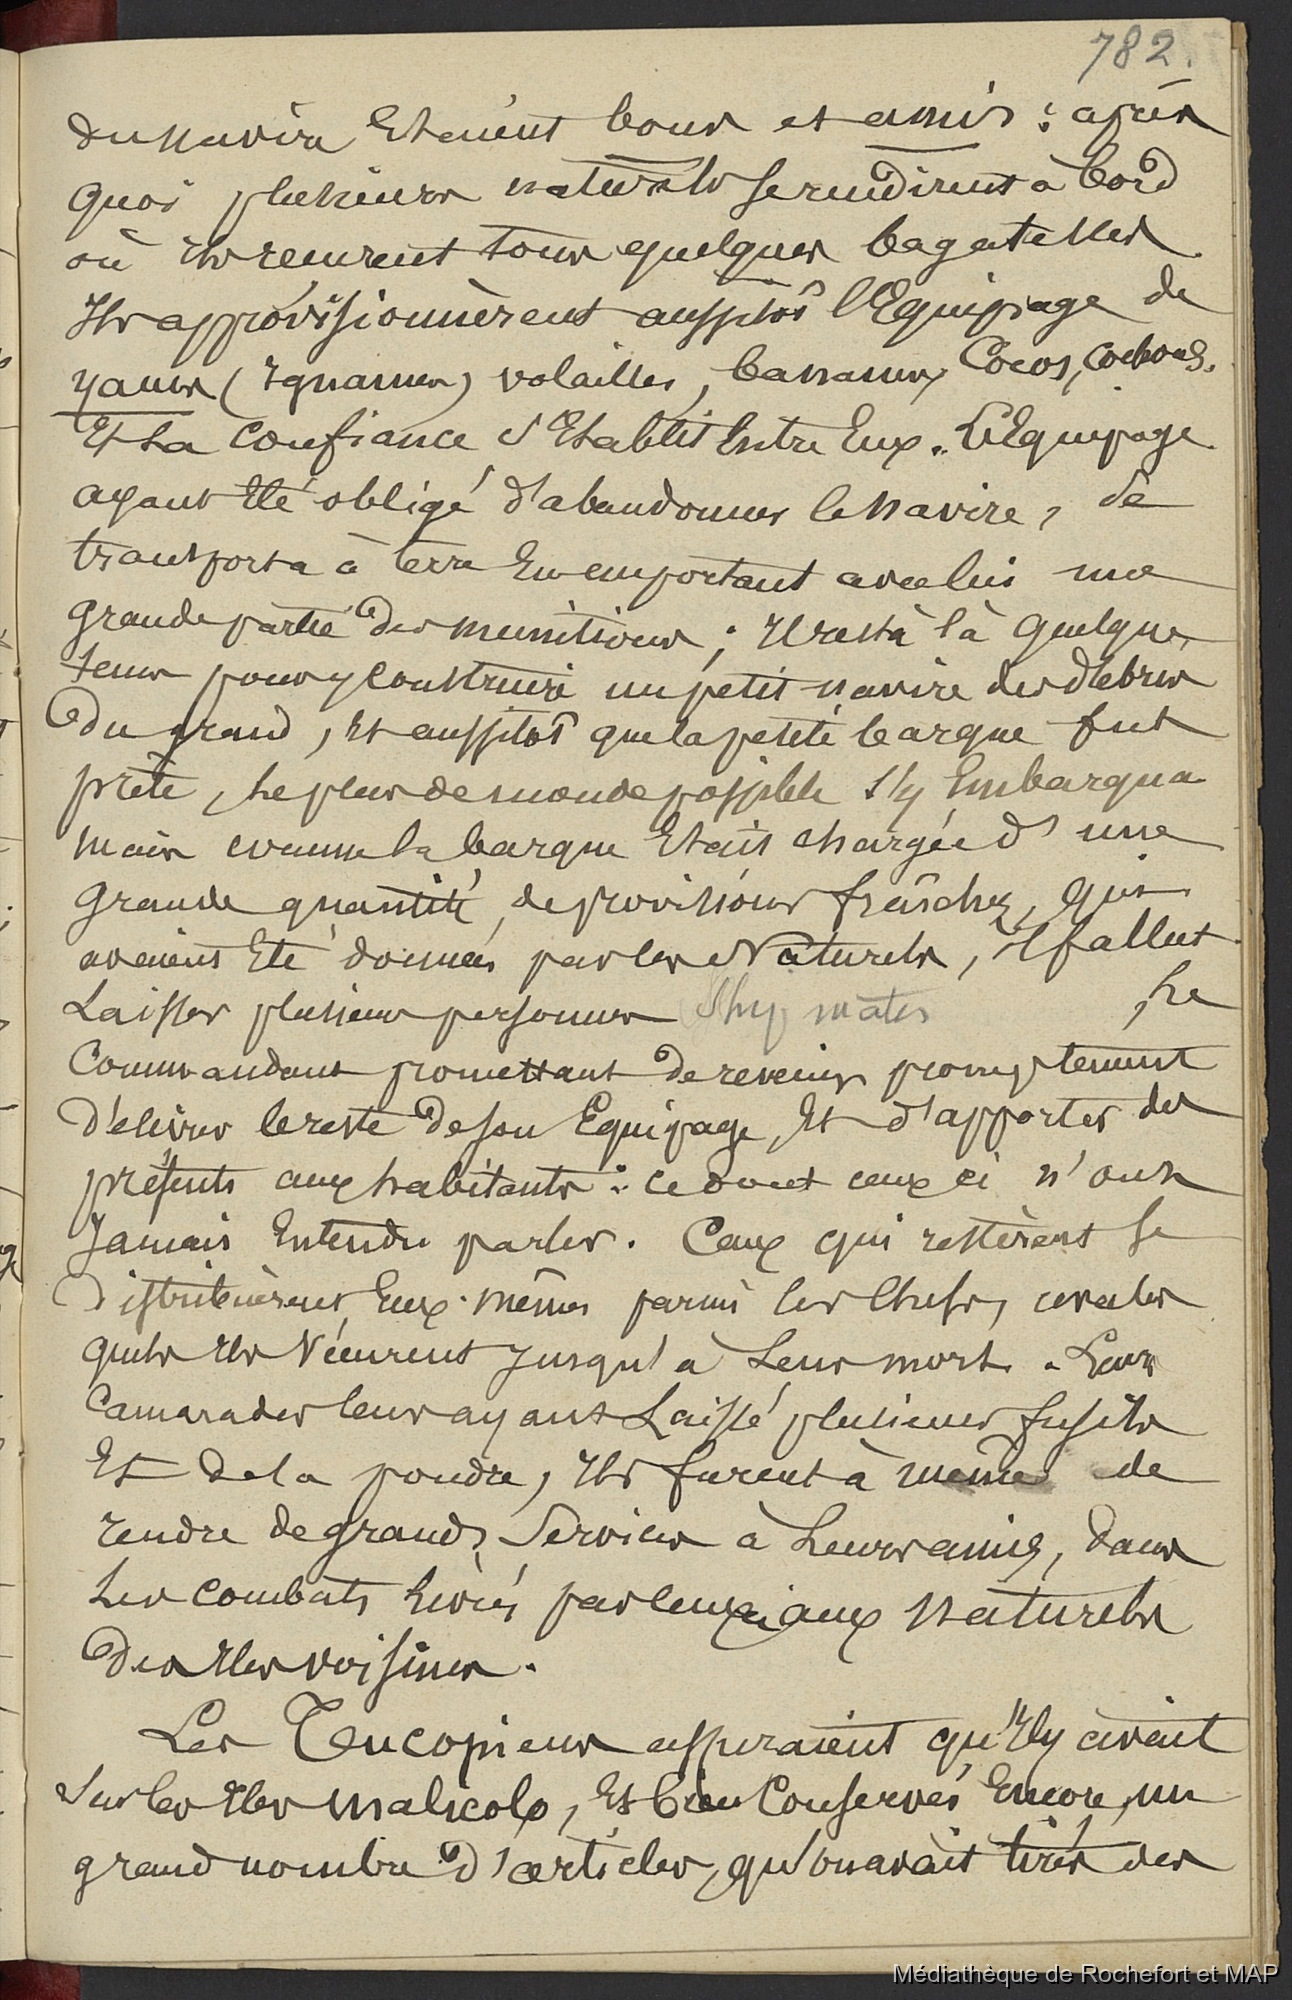 782.
du navire Etaient bons et amis : après
quoi plusieurs naturels se rendirent à bord
où ils recurent tous quelques bagatelles
Ils approvisionnèrent aussitôt l'Equipage de
yams (Ignames) volailles, bananes, Cocos, cochons.
Et la confiance s'Etablit Entre Eux. L'Equipage
ayant Eté obligé d'abandonner le navire, se
transporta à terre En emportant avec lui une
grande partie des munitions ; Il resta là quelque
tems pour y construire un petit navire des débris
du grand, Et aussitôt que la petite barque fut
prête, le plus de monde possible s'y Embarqua
mais comme la barque Etait chargée d'une
grande quantité de provisions fraîches, qui
avaient Eté données par les Naturels, il fallut
Laisser plusieurs personnes Ship mates , le
Commandant promettant de revenir promptement
délivrer le reste de son Equipage, Et d'apporter des
présents aux habitants : ce dont ceux ci n'ont
Jamais Entendu parler. Ceux qui restèrent se
distribuèrent Eux-mêmes parmi les Chefs, avec les
quels Ils Vécurent Jusqu'à Leur mort. Leurs
Camarades leur ayant Laissé plusieurs fusils
Et de la poudre, Ils furent à même de
rendre de grands Services à Leurs amis, dans
Les combats livrés par ceux ci aux naturels
des Iles voisines.
Les Tucopiens assuraient qu'Il y avait
Sur les Iles Malicolo, Et bien Conservés Encore, un
grand nombre d'articles, qu'on avait tirés des
Médiathèque de Rochefort et MAP